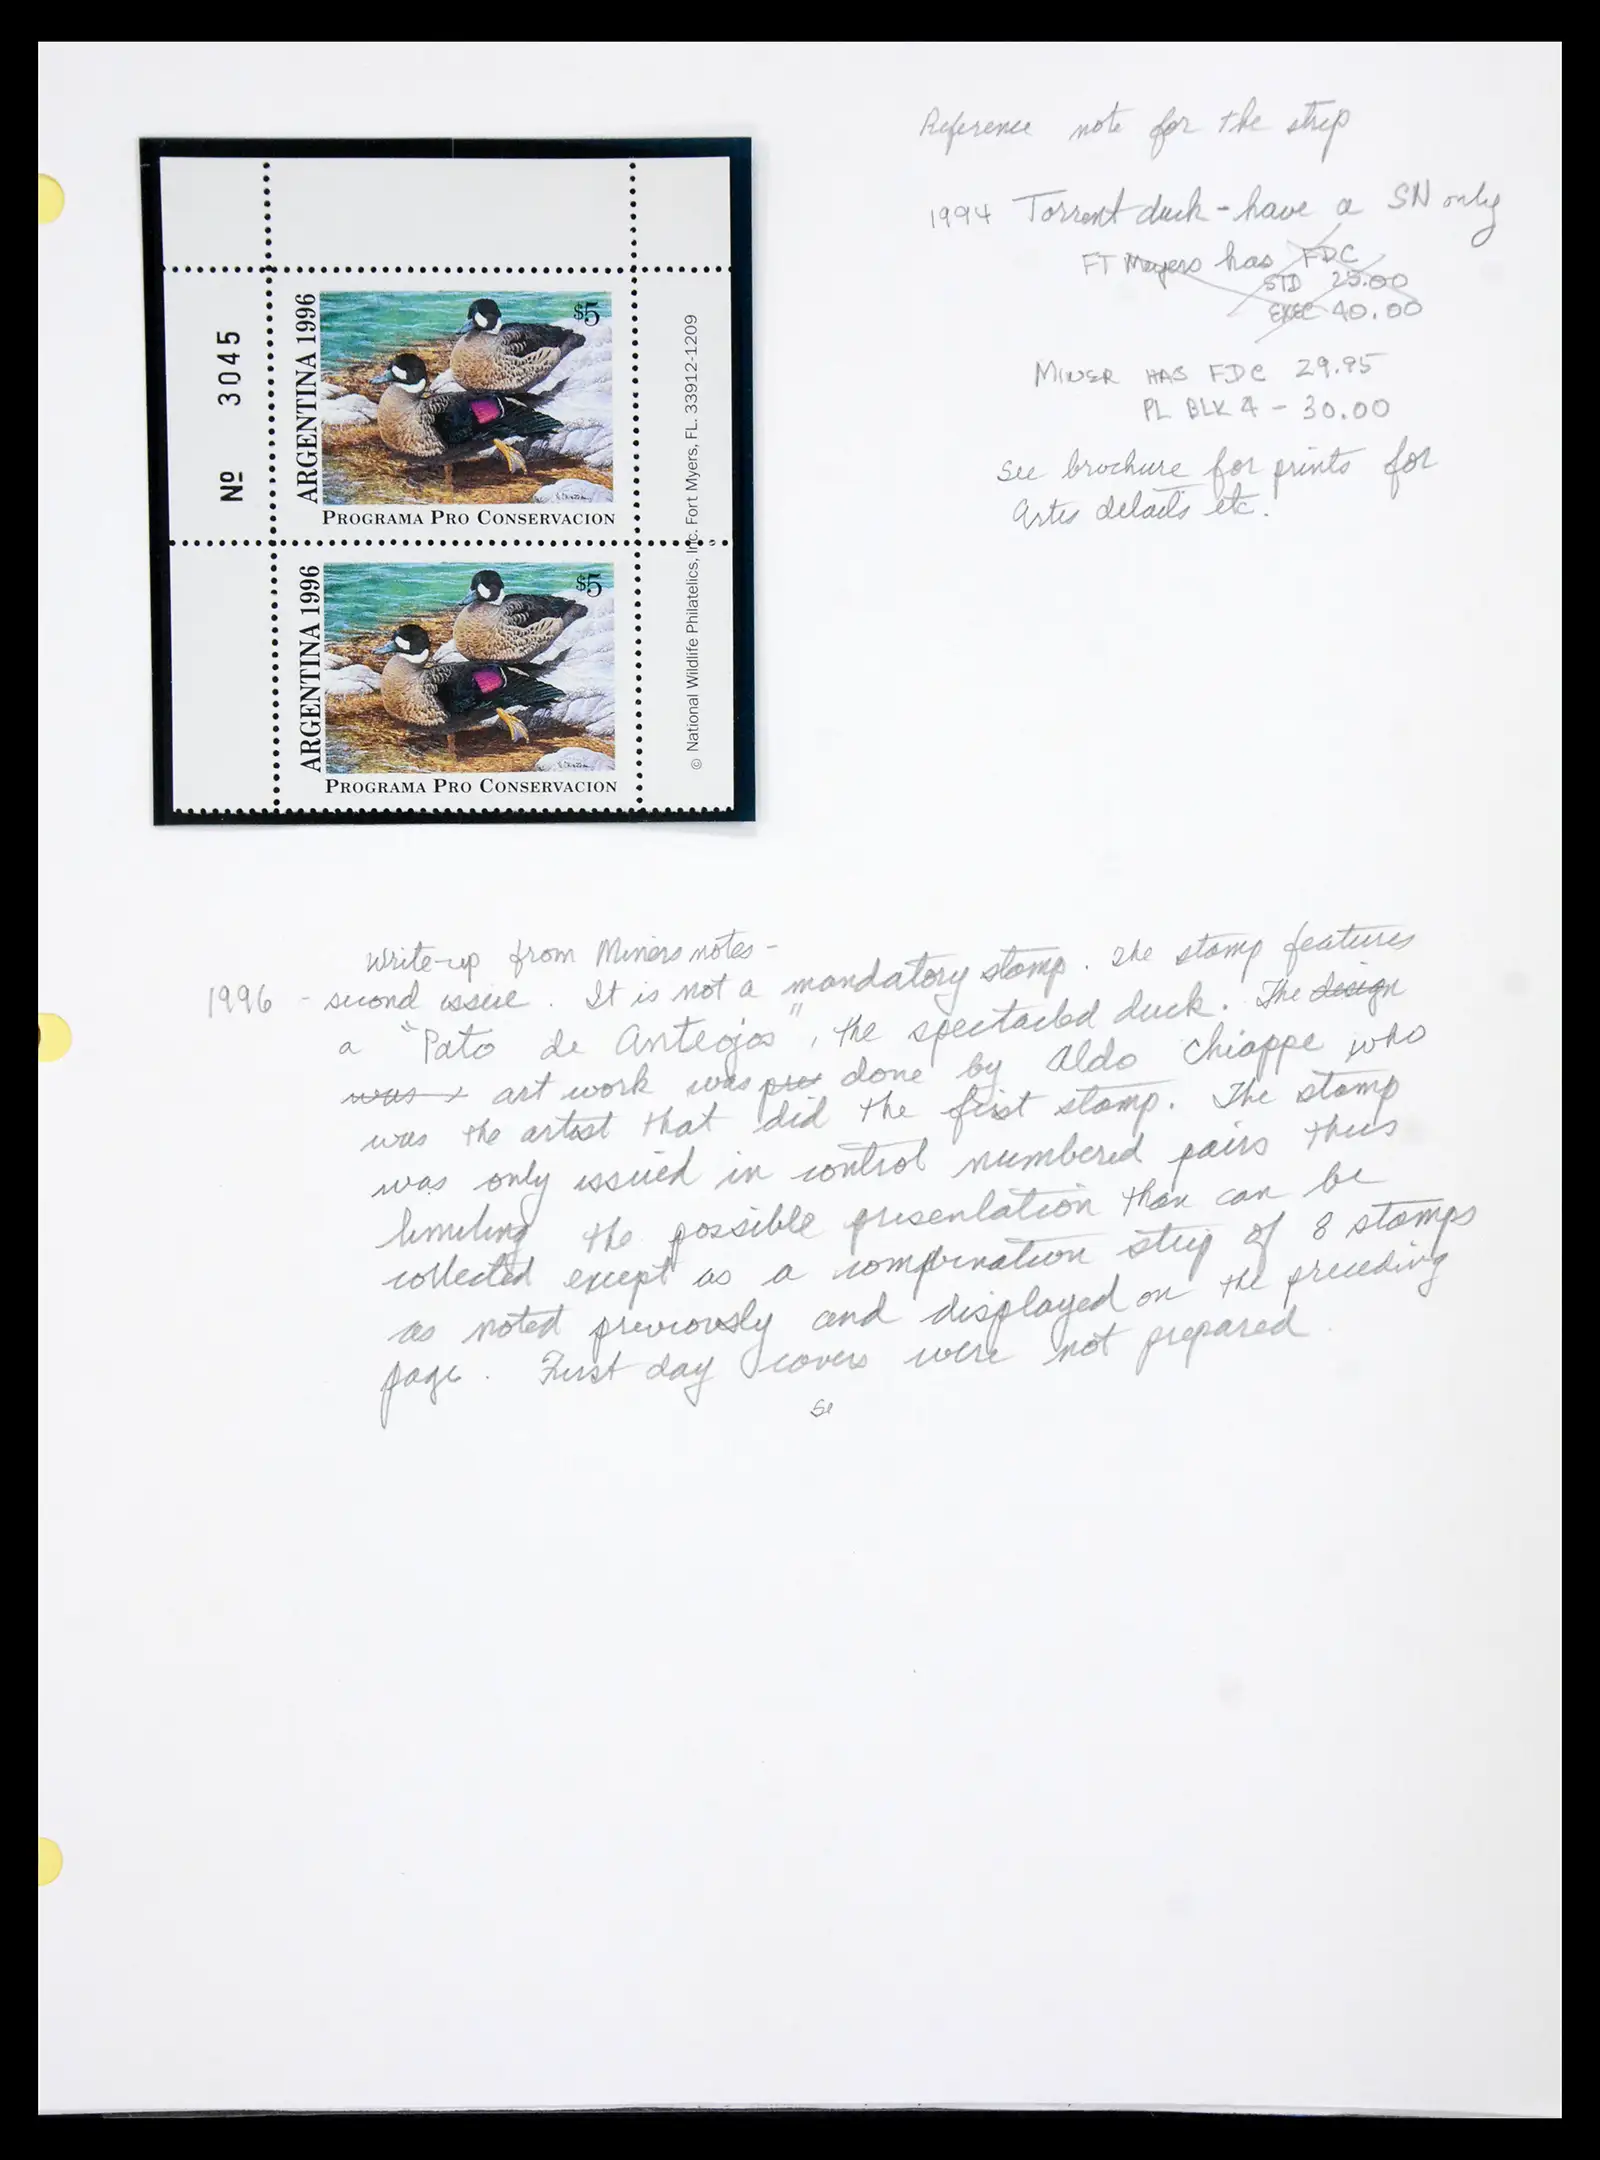 Reference note for the strip
1994 Torrent duck - have a SN only
FT Meyers has FDC
STD 25.00
EXEC 40.00
MINER HAS FDC 29.95
PL BLK 4 - 30.00
See brochure for prints for
Artis details etc.
Nº 3045
ARGENTINA 1996
$5
PROGRAMA PRO CONSERVACION
ARGENTINA 1996
$5
PROGRAMA PRO CONSERVACION
© National Wildlife Philatelics, Inc. Fort Myers, FL. 33912-1209
Write-up from Miners notes -
1996 - second issue. It is not a mandatory stamp. The stamp features
a "Pato de Anteojos", the spectacled duck. The design
was art work was pre done by Aldo Chiappe who
was the artist that did the first stamp. The stamp
was only issued in control numbered pairs thus
limiting the possible presentation than can be
collected except as a combination strip of 8 stamps
as noted previously and displayed on the preceding
page. First day covers were not prepared.